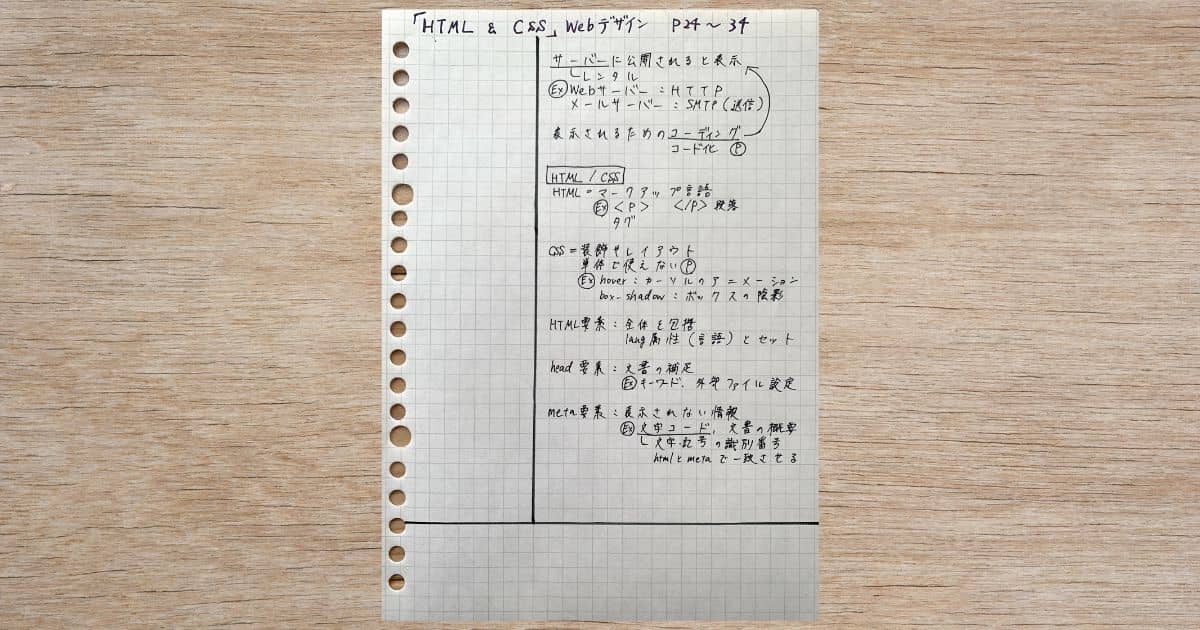 「HTML & CSS」Webデザイン P24～34
サーバーに公開されると表示
レンタル
Ex Webサーバー：HTTP
メールサーバー：SMTP（送信）
表示されるためのコーディング
コード化 P
HTML / CSS
HTML=マークアップ言語
Ex <P> </P> 段落
タグ
CSS=装飾やレイアウト
単体で使えない P
Ex hover：カーソルのアニメーション
box-shadow：ボックスの陰影
HTML要素：全体を包括
lang属性（言語）とセット
head要素：文書の補足
Ex キーワード、外部ファイル設定
meta要素：表示されない情報
Ex 文字コード、文書の概要
文字・記号の識別番号
htmlとmetaで一致させる